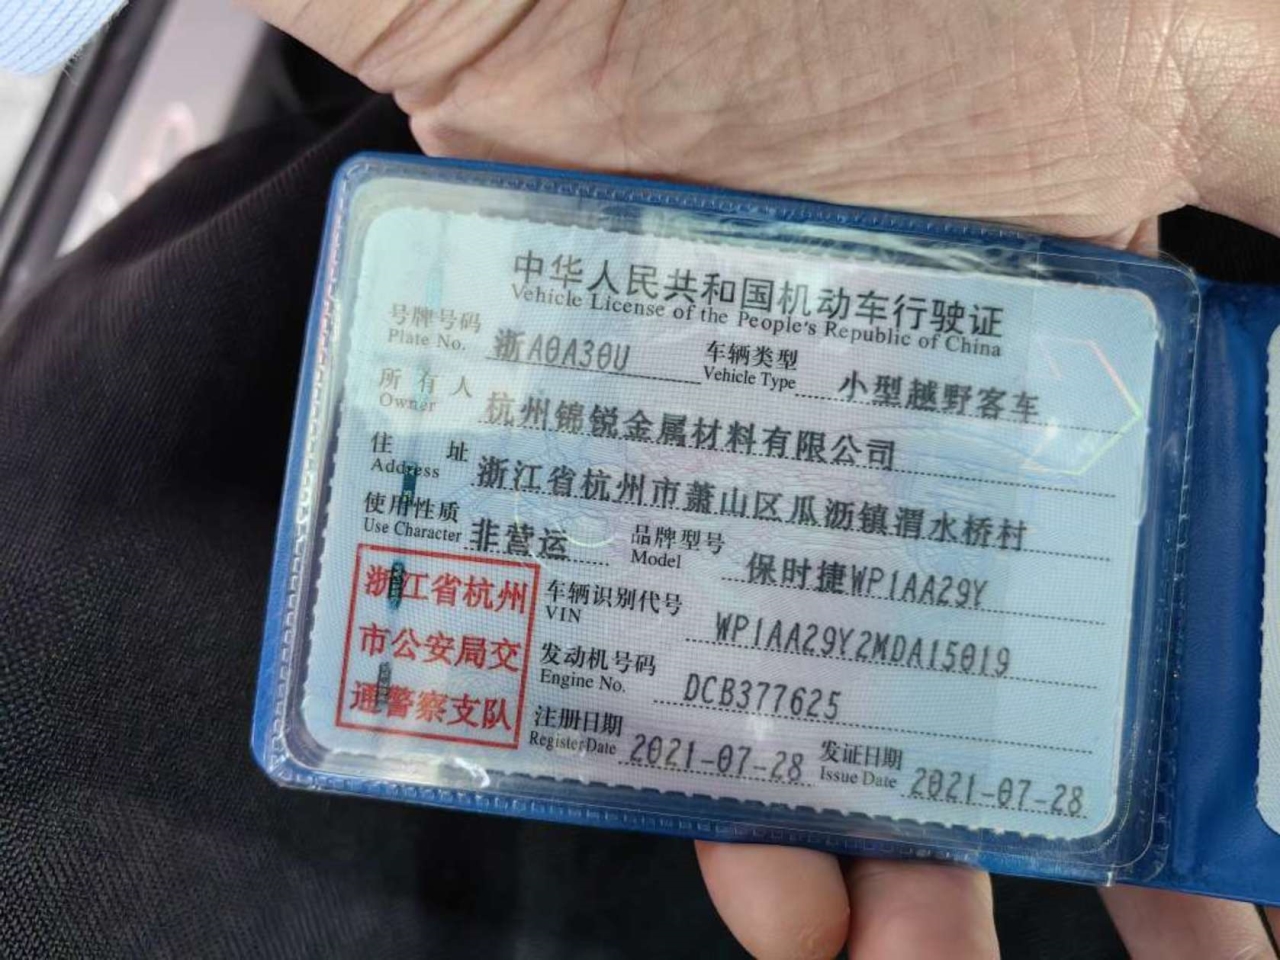 中华人民共和国机动车行驶证
Vehicle License of the People's Republic of China
号牌号码 浙A0A30U 车辆类型 小型越野客车
Plate No. Vehicle Type
所有人 杭州锦锐金属材料有限公司
Owner
住址 浙江省杭州市萧山区瓜沥镇渭水桥村
Address
使用性质 非营运 品牌型号 保时捷WP1AA29Y
Use Character Model
浙江省杭州
市公安局交
通警察支队
车辆识别代号 WP1AA29Y2MDA15019
VIN
发动机号码 DCB377625
Engine No.
注册日期 2021-07-28 发证日期 2021-07-28
Register Date Issue Date